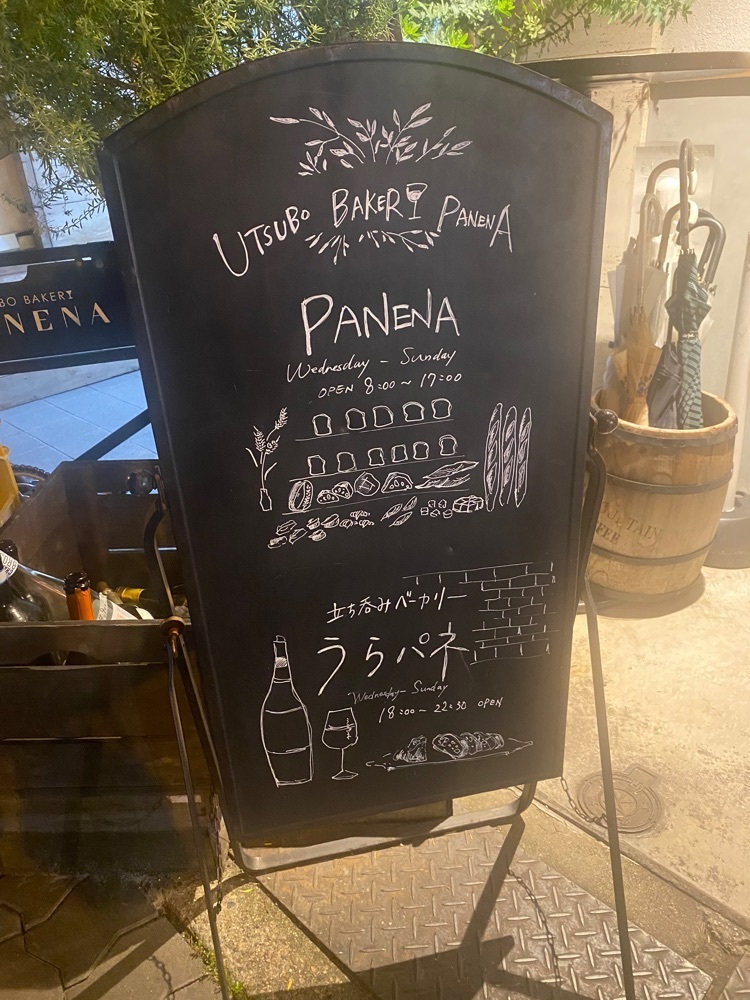 UTSUBO BAKERY PANENA
PANENA
Wednesday - Sunday
OPEN 8:00~17:00
立ち呑みベーカリー
うらパネ
Wednesday - Sunday
18:00~22:30 OPEN
BO BAKERY
NENA